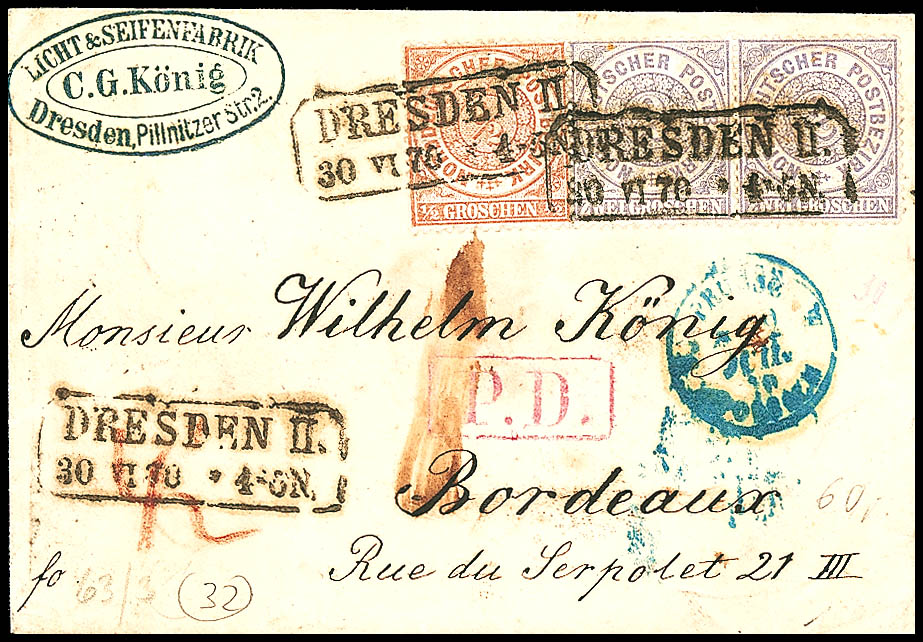 LICHT & SEIFENFABRIK
C.G.König
Dresden, Pillnitzer Str. 2.
DRESDEN II.
30 VI 70 * 4-5N.
DRESDEN II.
30 VI 70 * 4-5N.
½ GROSCHEN ½
ZWEI GROSCHEN
ZWEI GROSCHEN
Monsieur Wilhelm König
P.D.
DRESDEN II.
30 VI 70 * 4-5N.
Bordeaux
60,
Rue du Serpolet 21 III
fo
63/3 (32)